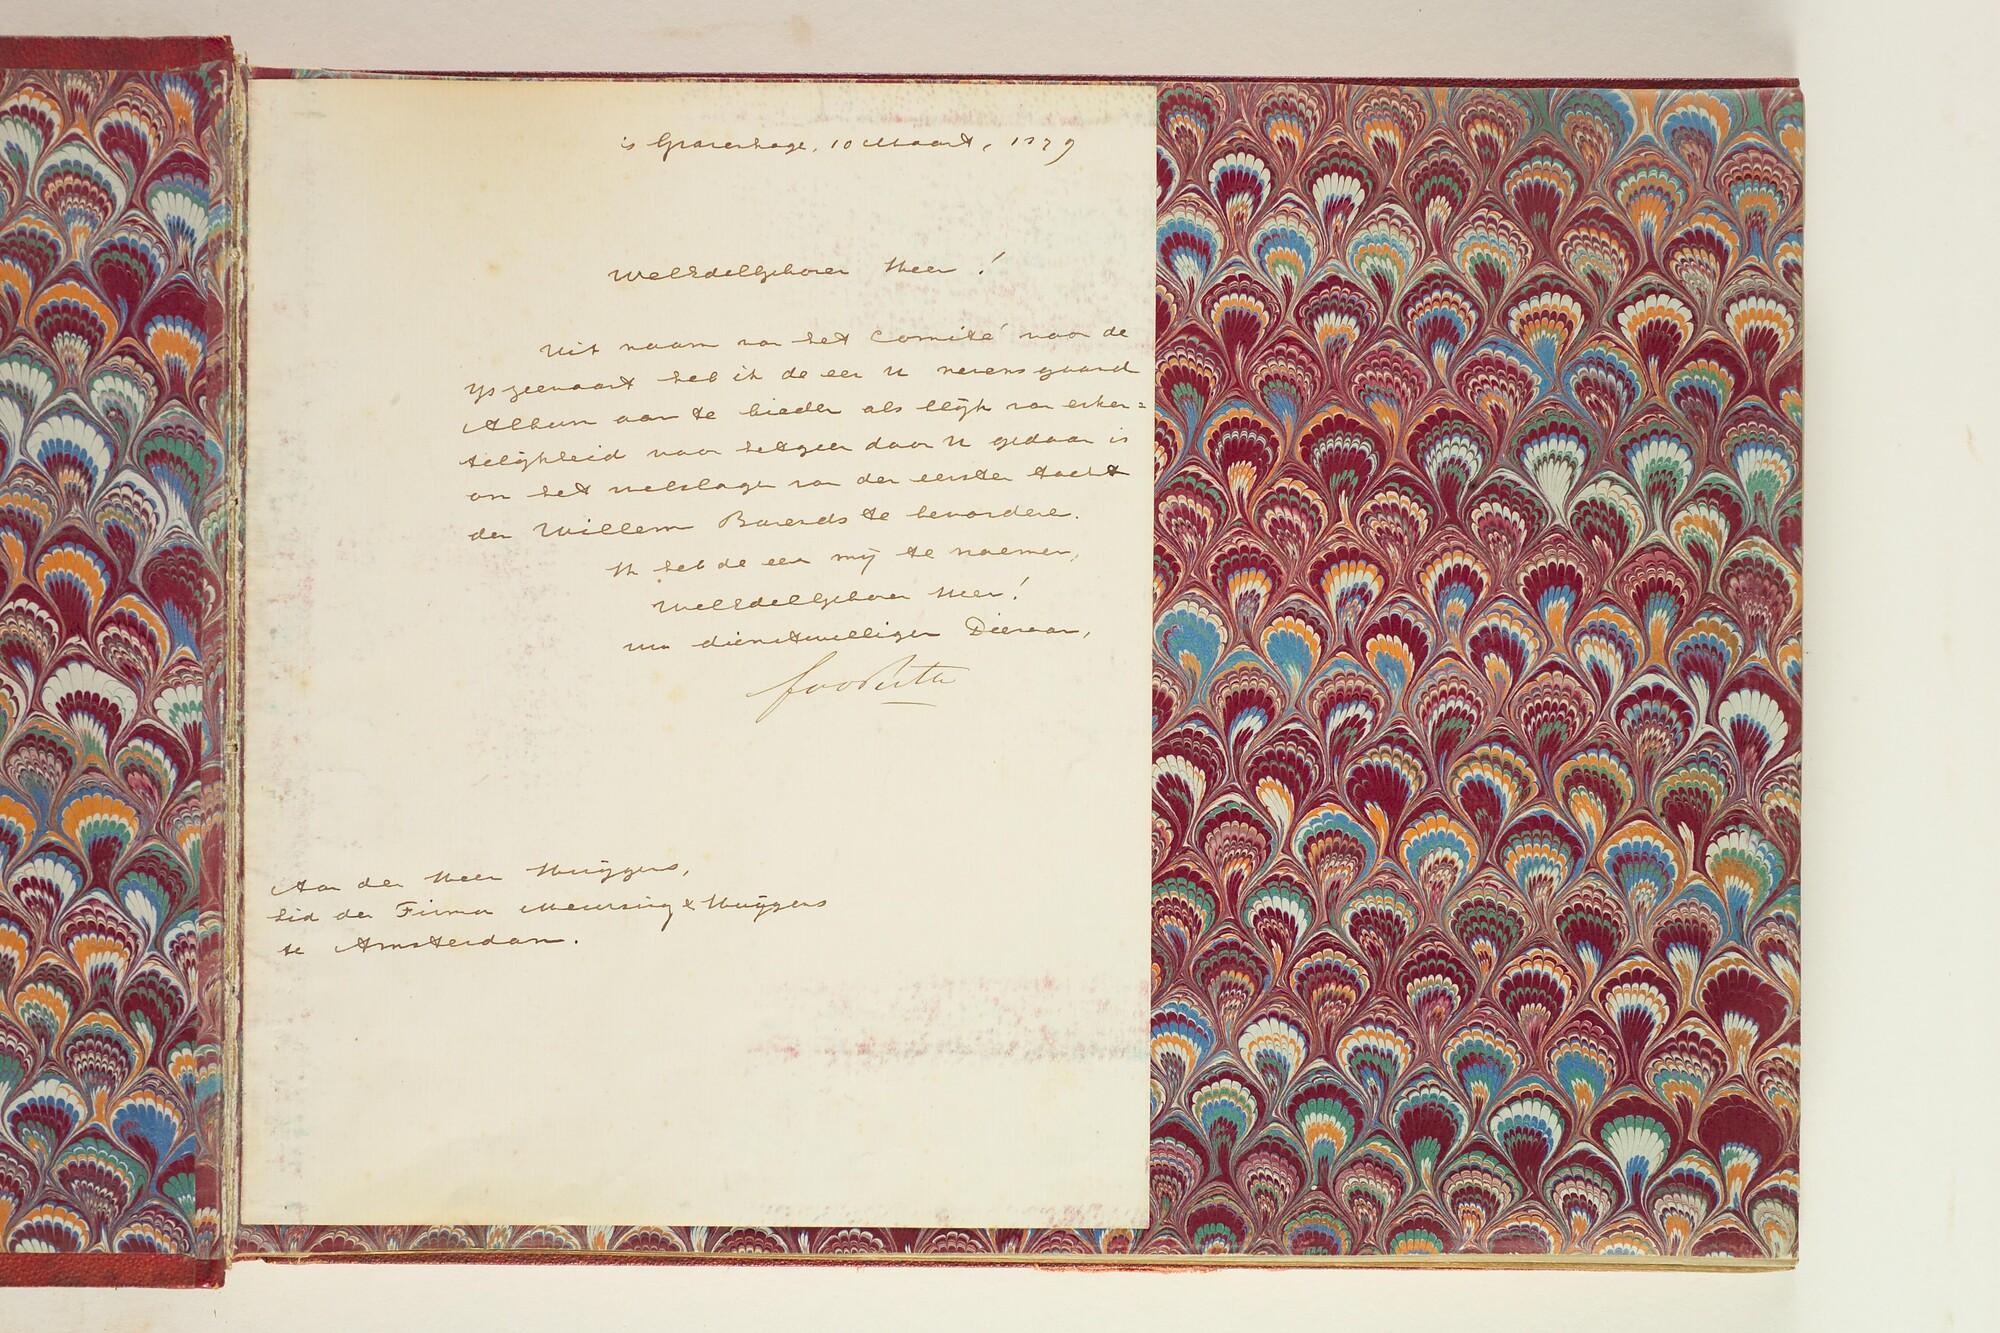 's Gravenhage, 10 Maart, 1879
WelEdelGeboren Heer!
Uit naam van het Comité voor de
IJszeevaart heb ik de eer U nevensgaand
Album aan te bieden als blijk van erken=
telijkheid voor hetgeen door U gedaan is
om het welslagen van den eersten tocht
der Willem Barends te bevorderen.
Ik heb de eer mij te noemen,
WelEdelGeboren Heer!
uw dienstwilligen Dienaar,
Aan den Heer Huÿgens,
Lid der Firma Meursing & Huÿgens
te Amsterdam.